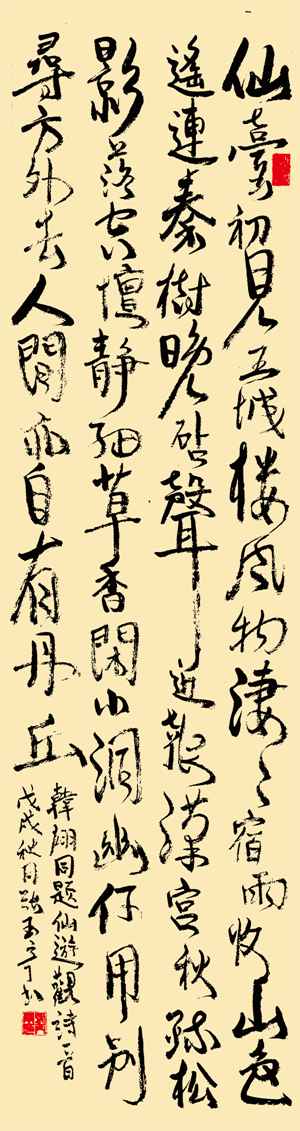 仙臺初見五城樓風物淒々宿雨收山色
遙連秦樹晚砧聲近報漢宮秋疏松
影落空壇靜細草香閑小洞幽何用別
尋方外去人間亦自有丹丘
韓翃同題仙遊觀詩一首
戊戌秋月